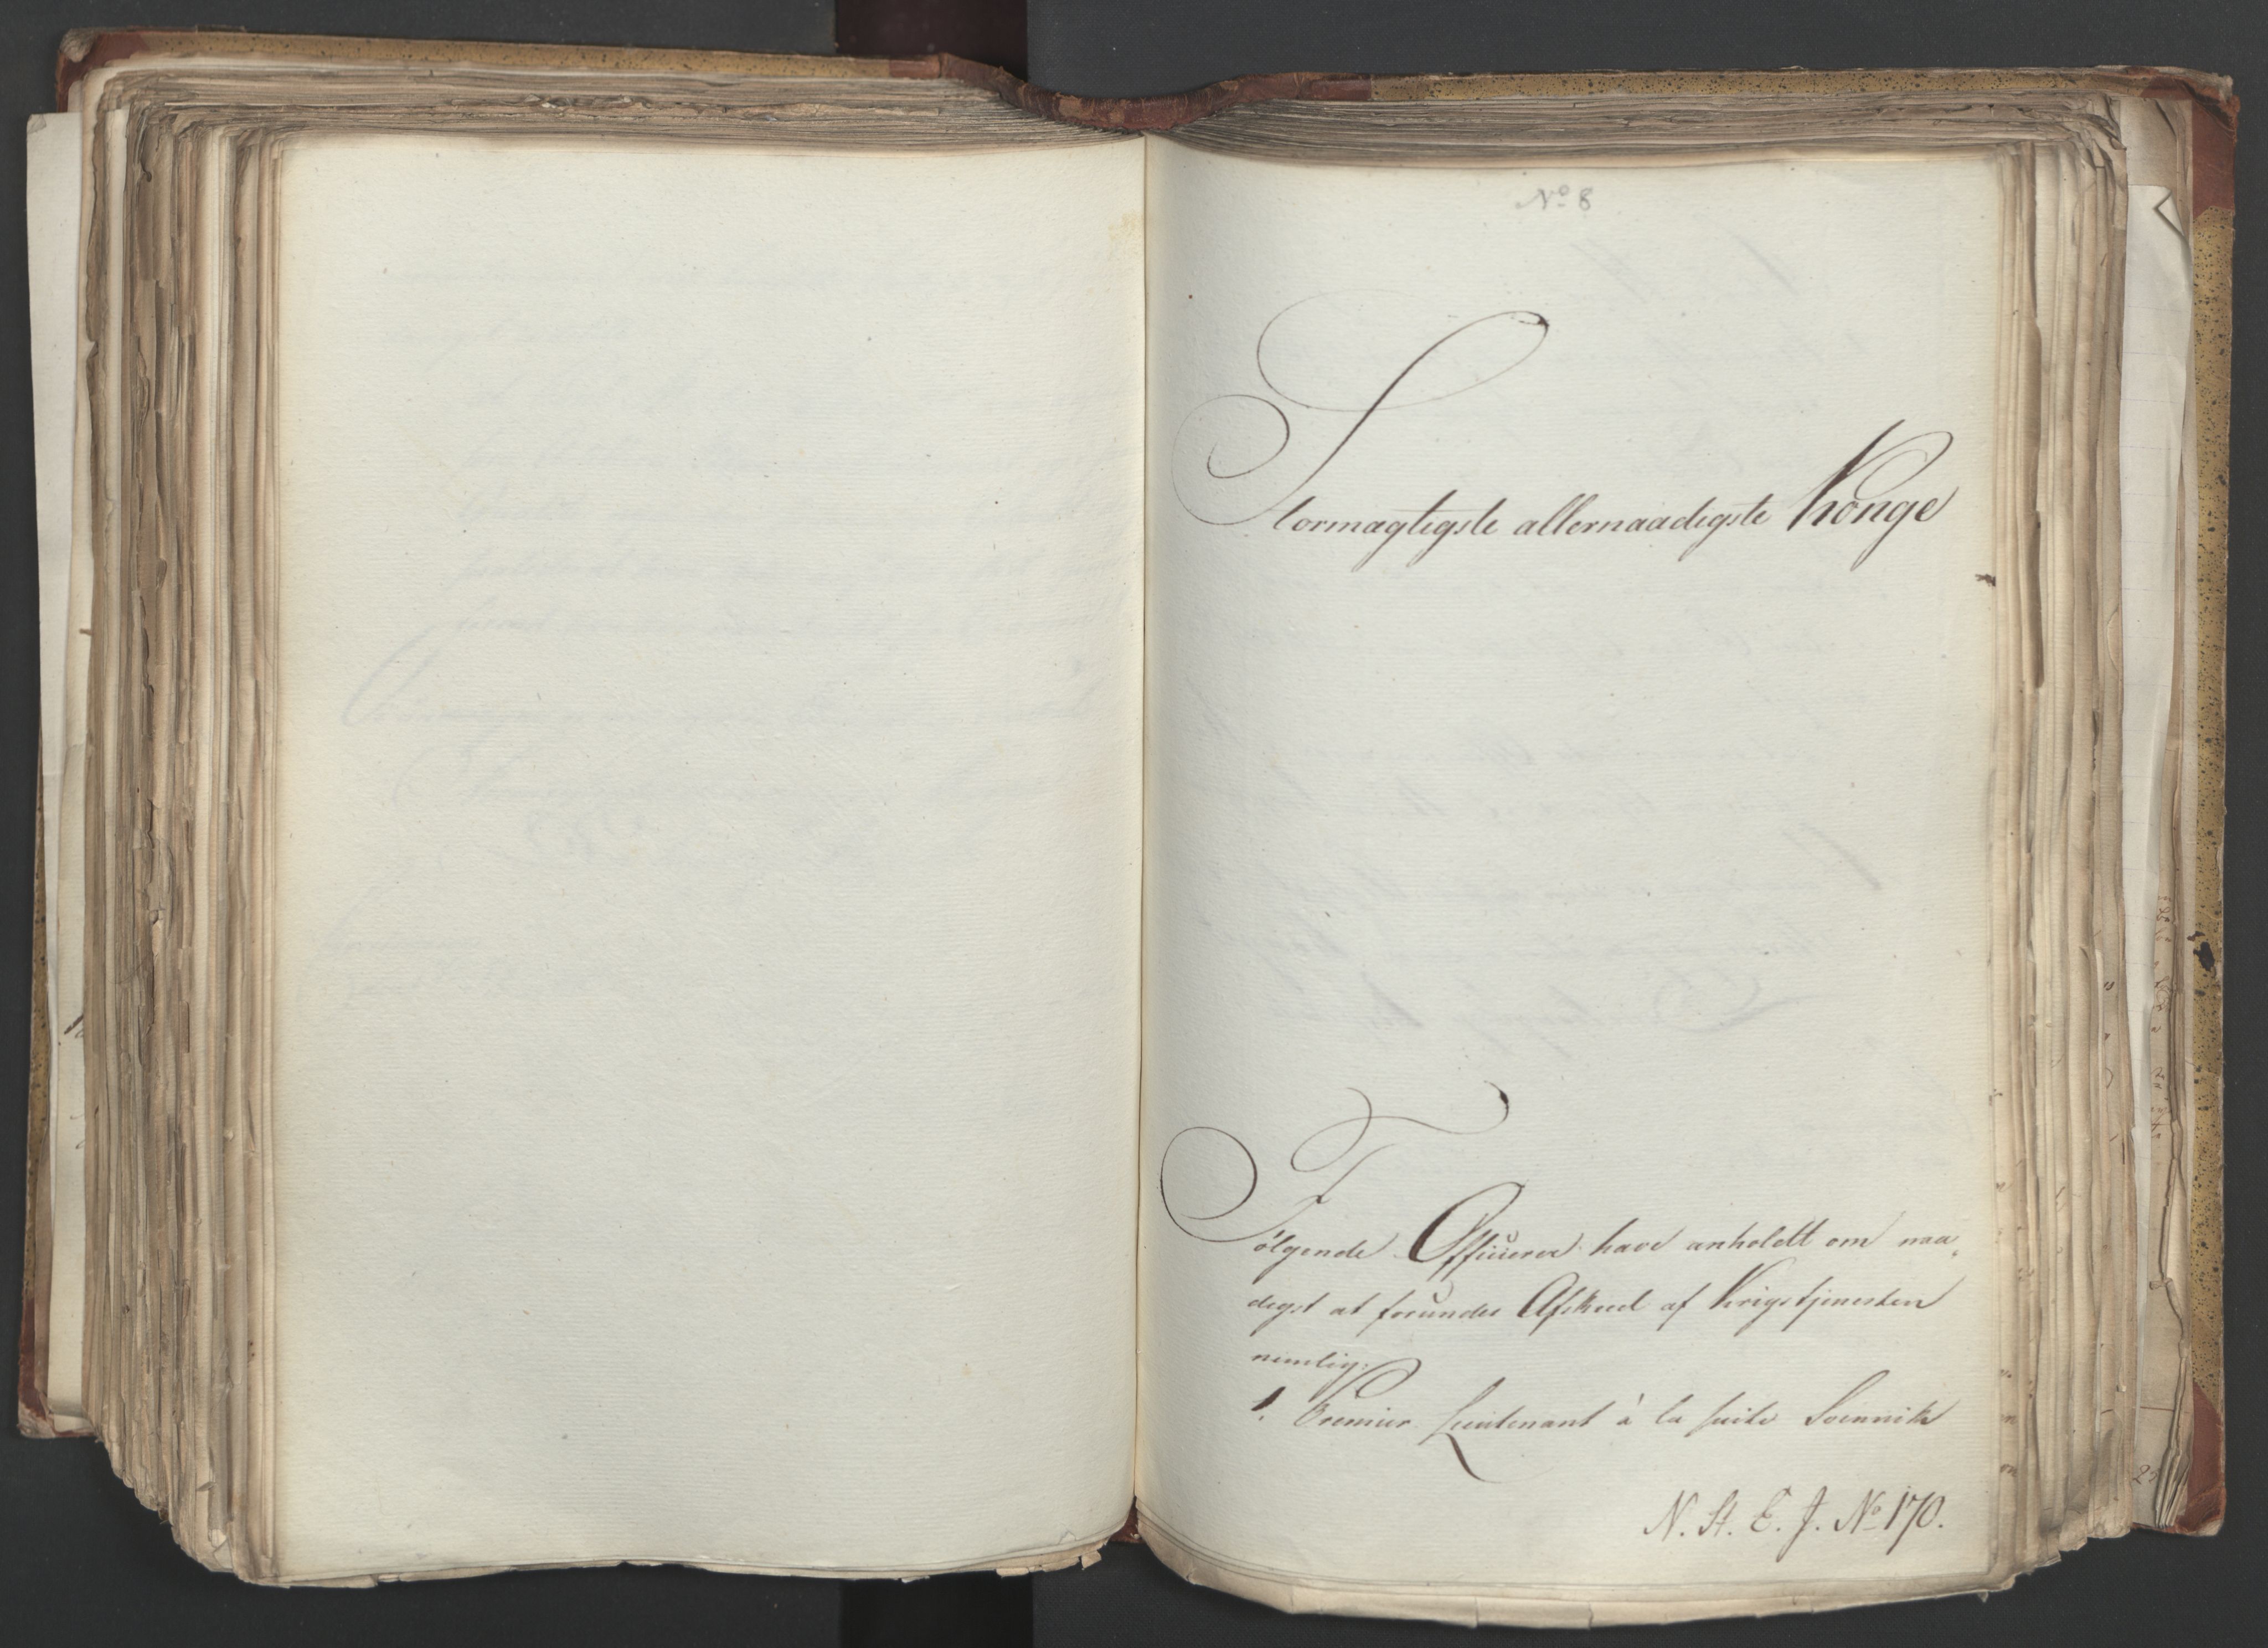 No 8
Stormægtigste allernaadigste Konge
Følgende Officierer have anholdt om naa-
digst at forundes Afskeed af Krigstjenesten
nemlig:
1. Premier Lieutenant à la suite
N. St. E. J. No 170.